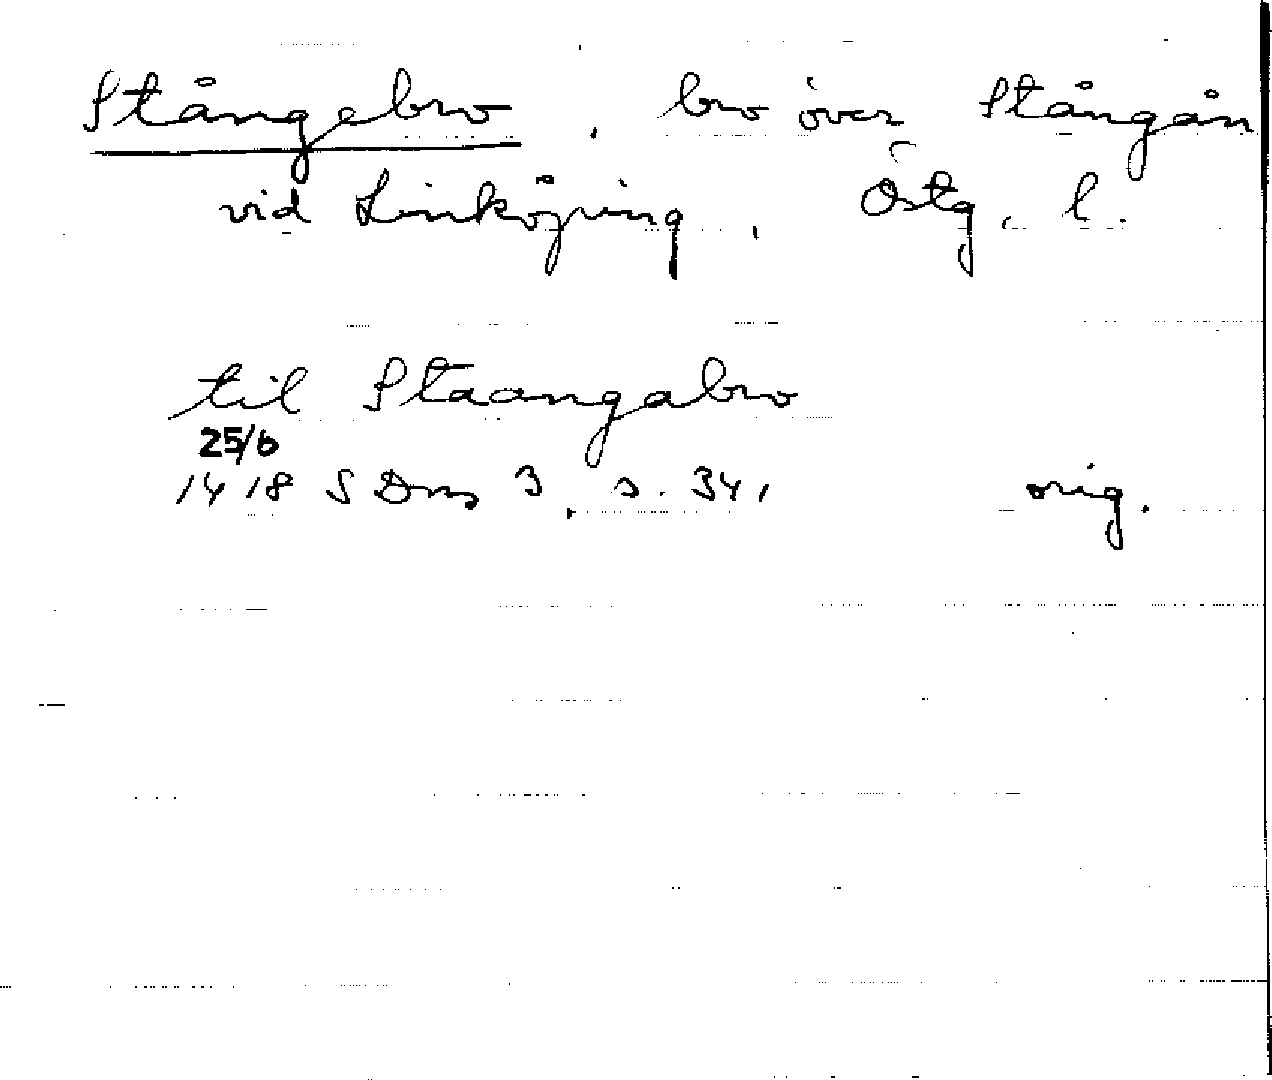 Stångebro, bro över Stångån
vid Linköping, Östg. l.
til Staangabro
25/6
1418 S Dns 3, s. 341 orig.